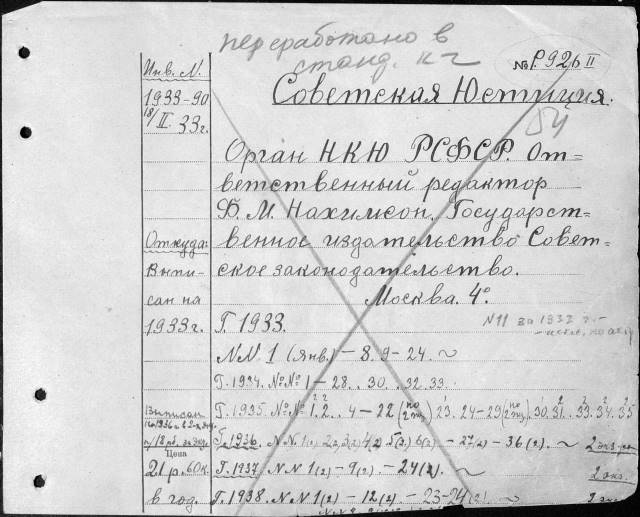 переработано в
станд. к-ч
№ Р. 926 II
Инв. N.
1933-90
18/II. 33 г.
Советская Юстиция.
Орган НКЮ РСФСР. От=
ветственный редактор
Ф. М. Нахимсон. Государст=
венное издательство Совет=
ское законодательство.
Москва. 4°.
Откуда:
Выпи-
сан на
1933 г.
N11 за 1933 г. -
Г. 1933.
NN 1 (янв.) - 8. 9 - 24. ~
Г. 1934. №№ 1 - 28. . 30. . 32. 33.
Г. 1935. №№ 1. 2. . 4 - 22 (по 2 экз) 23. 24 - 29 (по 2 экз). 30. 31. 33. 34. 35
Выписан
Г. 1936. NN 1(2) 2(2) 3(2) 4(2) 5(2) 6(2) - 27(2) - 36(2). ~ 2 экз.
Цена
21 р. 60 к.
в год.
Г. 1937. NN 1(2) - 9(2) - 24(2). ~ 2 экз.
Г. 1938. NN 1(2) - 12(2) - 23-24(2). ~